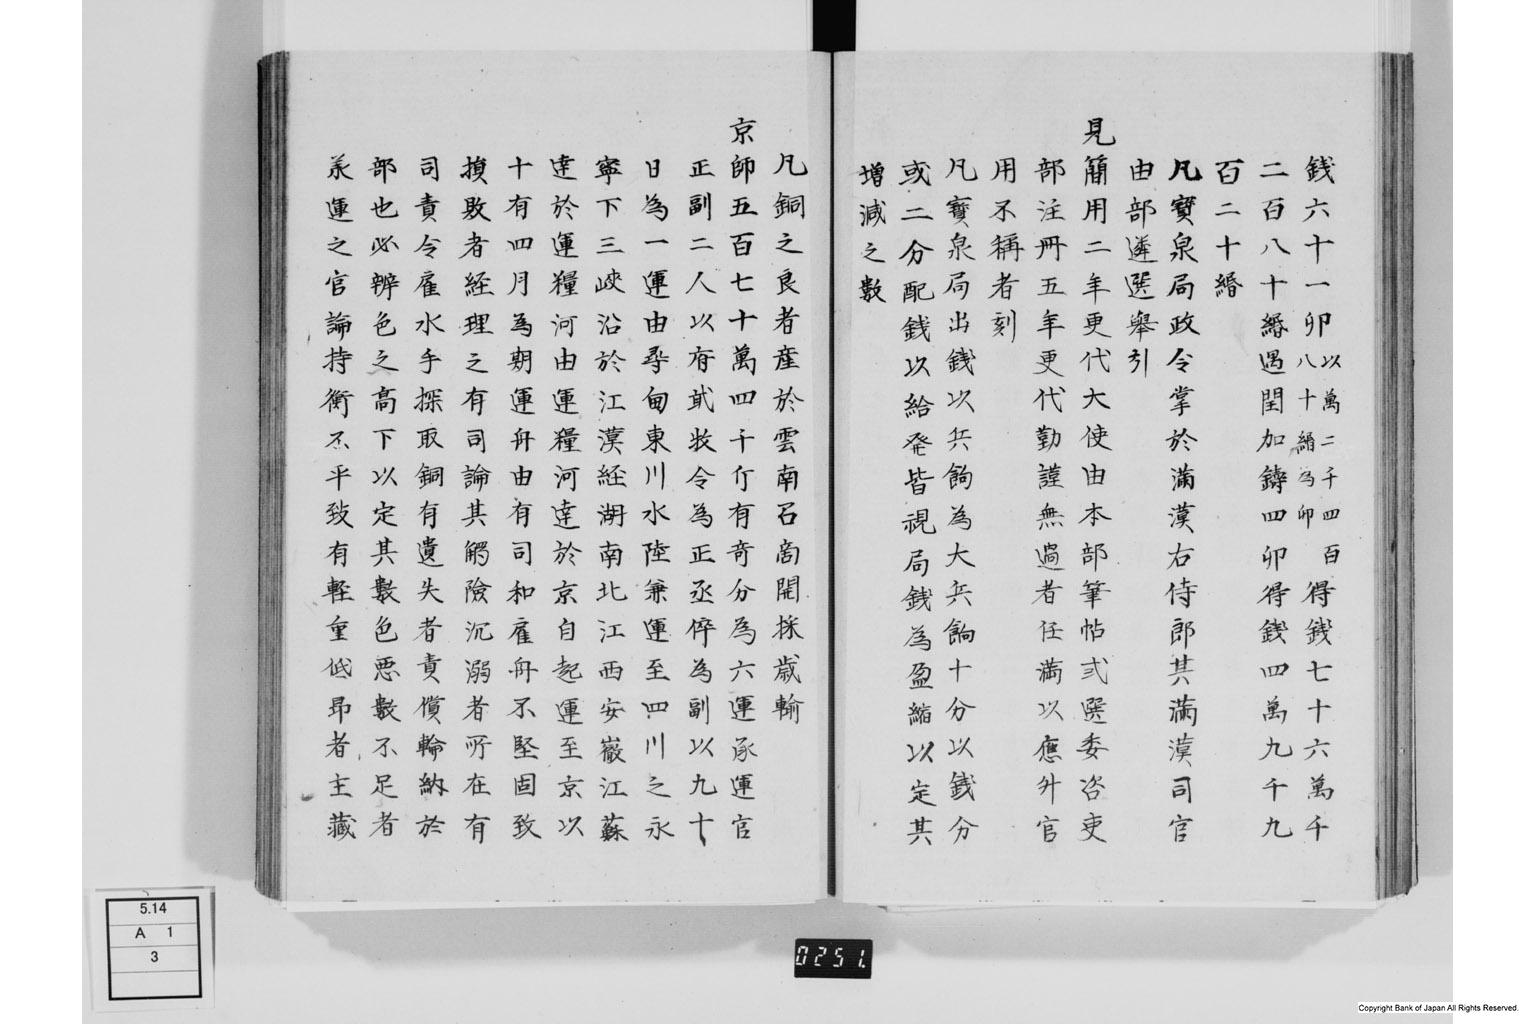 錢六十一卯以萬二千四百八十緡為卯得錢七十六萬千
二百八十緡遇閏加鑄四卯得錢四萬九千九
百二十緡
凡寶泉局政令掌於滿漢右侍郎其滿漢司官
由部遴選舉引
見簡用二年更代大使由本部筆帖式選委咨吏
部注冊五年更代勤謹無過者任滿以應升官
用不稱者刻
凡寶泉局出錢以兵餉為大兵餉十分以錢分
或二分配錢以給発皆視局錢為盈縮以定其
增減之數
凡銅之良者産於雲南召商開採歲輸
京師五百七十萬四千斤有奇分為六運承運官
正副二人以府貳牧令為正丞倅為副以九十
日為一運由尋甸東川水陸兼運至四川之永
寧下三峽沿於江漢経湖南北江西安巖江蘇
達於運糧河由運糧河達於京自起運至京以
十有四月為期運舟由有司和雇舟不堅固致
損敗者経理之有司論其觸險沉溺者所在有
司責令雇水手探取銅有遺失者責償輪納於
部也必辨色之高下以定其數色惡數不足者
羕運之官論持衡不平致有軽重低昂者主藏
5.14
A 1
3
0251.
Copyright Bank of Japan All Rights Reserved.